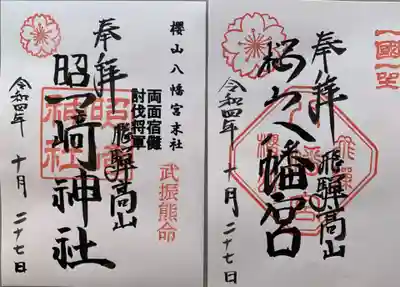 櫻山八幡宮末社
両面宿儺
討伐将軍
武振熊命
奉拝
飛騨高山
昭﨑神社
令和四年 十月 二十七日
一國一宮
奉拝
飛騨高山
桜山八幡宮
令和四年 十月 二十七日